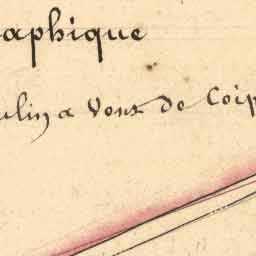 aphique
ulin a Vent de Coip